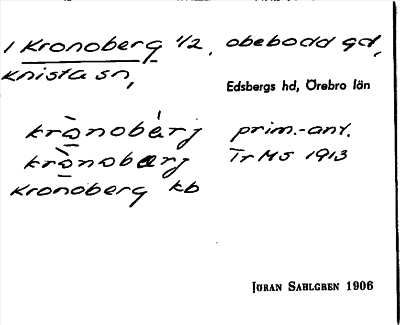 1 Kronoberg 1/2, obebodd gd,
Knista sn,
Edsbergs hd, Örebro län
krònobàrj prim.-ant.
krònobærj Tr MS 1913
Kronoberg kb
JÖRAN SAHLGREN 1906